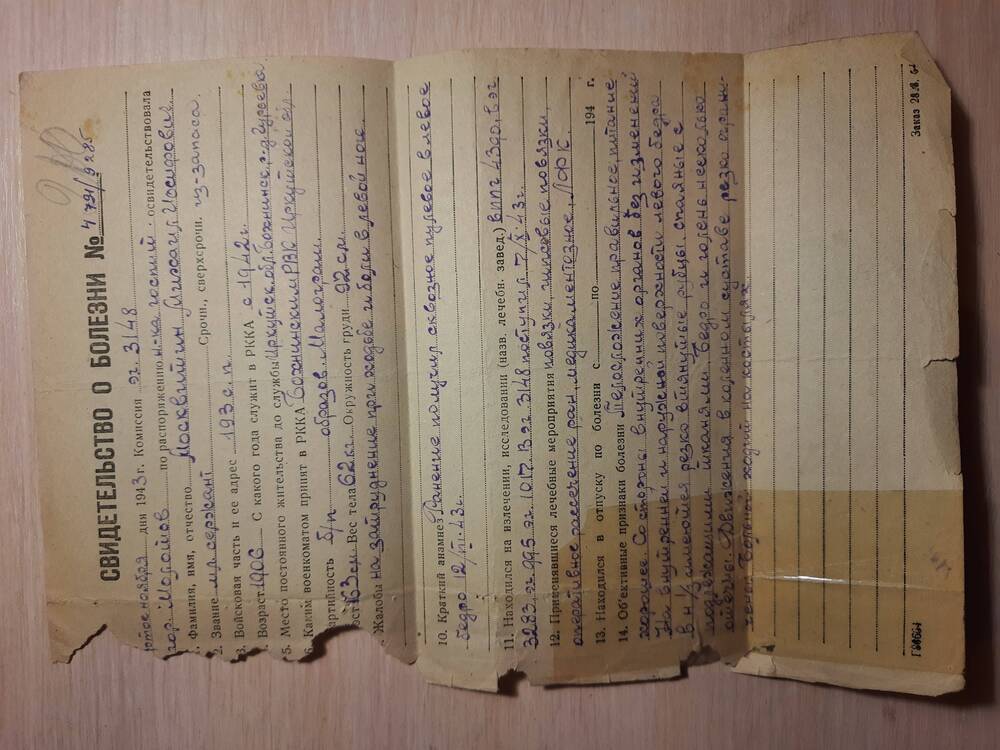 210
СВИДЕТЕЛЬСТВО О БОЛЕЗНИ № 4791/9285
ртое ноября дня 1943 г. Комиссия эг. 3148
гор. Молотов по распоряжению н-ка госпит. освидетельствовала
1. Фамилия, имя, отчество Москвитин Михаил Иосифович
2. Звание мл. сержант Срочн., сверхсрочн. из-запаса.
3. Войсковая часть и ее адрес 193 с. п.
Возраст 1906 С какого года служит в РККА с 1942 г.
5. Место постоянного жительства до службы Иркутск. обл. Бохнинск. р. д. Гурьевка
6. Каким военкоматом принят в РККА Бохнинским РВК Иркутской обл.
артийность б/п образов. Малограм.
ост 163 см. Вес тела 62 кг. Окружность груди 92 см.
. Жалобы на затруднение при ходьбе и боли в левой ноге.
10. Краткий анамнез Ранение получил сквозное пулевое в левое
бедро 12/III-43 г.
11. Находился на излечении, исследовании (назв. лечебн. завед.) в ппг 4390, в эг
3283, эг. 995 эг. 1017. В эг. 3148 поступил 7/X-43 г.
12. Применявшиеся лечебные мероприятия повязки, гипсовые повязки,
оперативное рассечение ран, медикаментозное, ЛФК.
13. Находился в отпуску по болезни с по 194 г.
14. Об'ективные признаки болезни Телосложение правильное, питание
хорошее. Со стороны внутренних органов без изменений
На внутренней и наружной поверхности левого бедра
в н 1/3 имеются резко втянутые рубцы, спаяные с
подлежащими тканями. Бедро и голень несколько
отечны. Движения в коленном суставе резко ограни-
чены Больной ходит на костылях.
Г86664
Заказ 28.8.